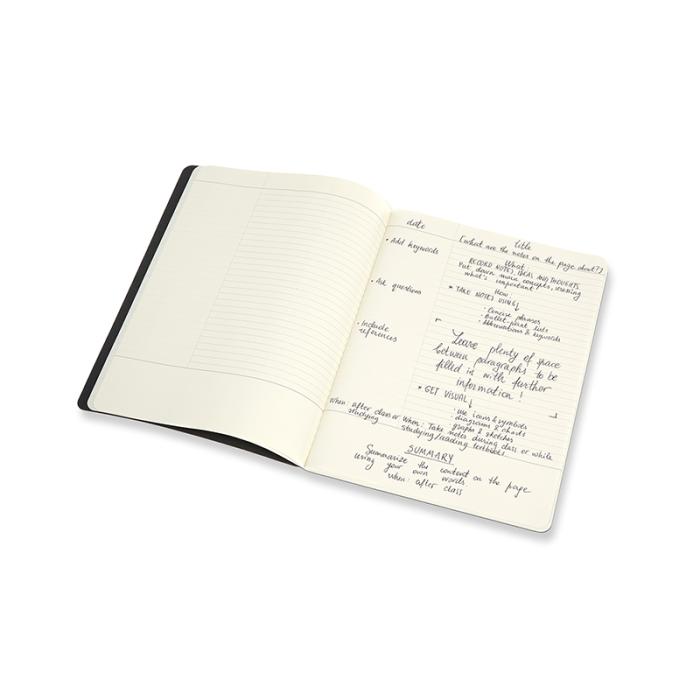 date
title
[what are the notes on the page about?]
• Add keywords
• Ask questions
• Include
references
When: after class or
studying
What:
RECORD NOTES, IDEAS AND THOUGHTS
Put down main concepts, stressing
what's important
How:
* TAKE NOTES USING ↓
- Concise phrases
- Bullet-point lists
- Abbreviations & keywords
Leave plenty of space
between paragraphs to be
filled in with further
information!
* GET VISUAL ↓
- Use icons & symbols
- diagrams & charts
- graphs & sketches
When: Take notes during class or while
studying/reading textbooks
SUMMARY
Summarize the content on the page
using your own words
When: after class